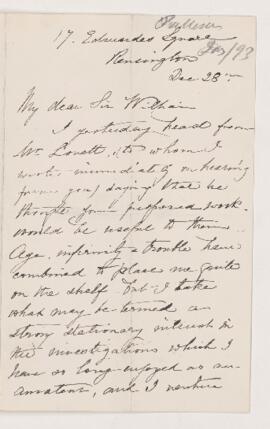 17. Edwardes Square
Kensington
Dec 28th
/93
My dear Sir William
I yesterday heard from
Mr. Lovett, (to whom I
wrote immediately on hearing
from you) saying that he
thought your proposed work
would be useful to them.
Age, infirmity & trouble have
combined to place me quite
on the shelf but I take
what may be termed an
strong stationary interest in
the investigations which I
have so long enjoyed as an
amateur, and I venture